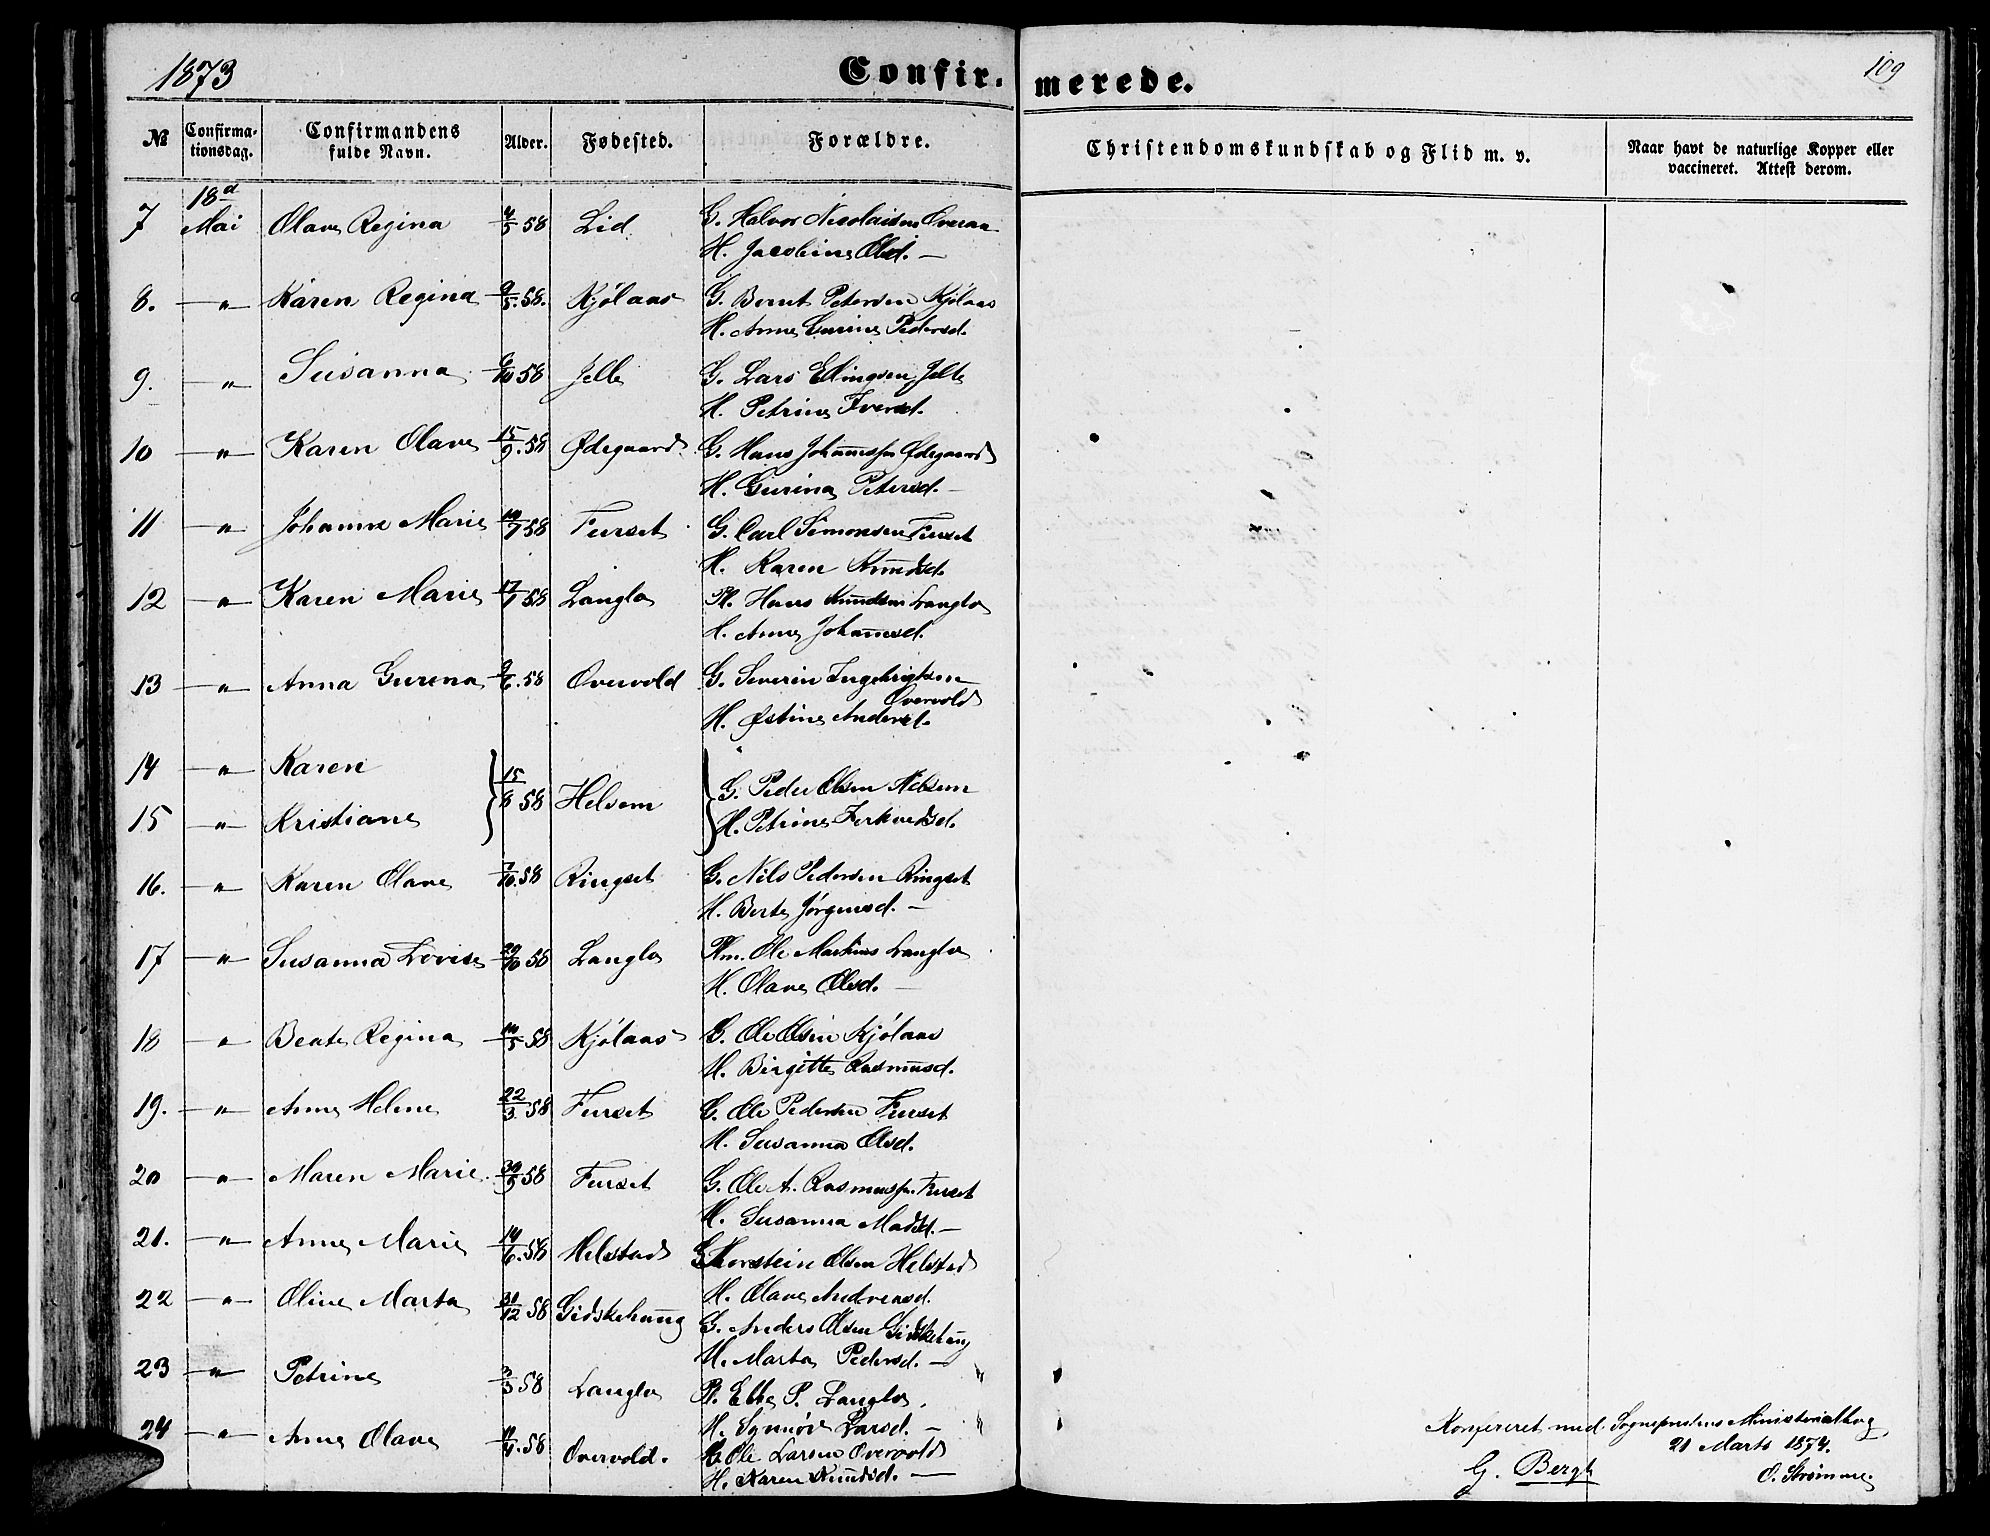 1873 Confirmerede. 109
№ Confirmationsdag. Confirmandens fulde Navn. Alder. Fødested. Forældre. Christendomskundskab og Flid m. v. Naar havt de naturlige Kopper eller vaccineret. Attest derom.
18d
7 Mai Olave Regina 4/5 58 Lid G. Halvor Nicolaisen Overaa
H. Jacobine Olsd. —
8. — " — Karen Regina 9/5. 58. Kjølaas G. Bernt Petersen Kjølaas
H. Anne Gurine Pedersd.
9. — " — Susanna 6/10 58 Jelle G. Lars Ellingsen Jelle
H. Petrine Iversd.
10 — " — Karen Olave 15/9. 58 Ødegaard G. Hans Johannesen Ødegaard
H. Gurina Petersd. —
11 — " — Johanne Marie 10/7 58 Furset G. Carl Simonsen Furset
H. Karen Knudsd.
12 — " — Karen Marie 17/1 58 Langlo Pl. Hans Knudsen Langlo
H. Anne Johannesd.
13 — " — Anna Gurina 9/6. 58 Overvold G. Severin Ingebrigtsen
Overvold
H. Østine Andersd.
14 — " — Karen
15/8 58 Helsem G. Peder Olsen Helsem
15 — " — Kristiane H. Petrine Ferkvedsd.
16. — " — Karen Olave 7/10. 58 Ringset G. Nils Pedersen Ringset
H. Berte Jørgensd. —
17 — " — Susanna Lovise 29/10 58 Langlo Plm. Ole Martinus Langlo
H. Olave Olsd. —
18 — " — Beate Regina 10/5 58 Kjølaas G. Ole Olsen Kjølaas
H. Birgitte Rasmusd.
19. — " — Anne Helene 22/3. 58 Furset G. Ole Pedersen Furset
H. Susanna Olsd.
20 — " — Maren Marie 30/5 58 Furset G. Ole A. Rasmussen Furset
H. Susanna Madsd. —
21. — " — Anne Marie 14/6. 58 Helstad G. Thorstein Olsen Helstad
H. Olave Andreasd.
22 — " — Oline Marta 31/12 58 Gidskehaug G. Anders Olsen Gidskehaug
H. Marta Pedersd. —
23 — " — Petrine 3/3 58 Langlo Pl. Ebbe P. Langlo
H. Synnøve Larsd. —
24 — " — Anne Olave 11/4. 58 Overvold. G. Ole Larsen Overvold
H. Karen Knudsd. —
Konfereret med Sognepræstens Ministerialbog
21 Marts 1874.
G. Bergh O. Strømme.